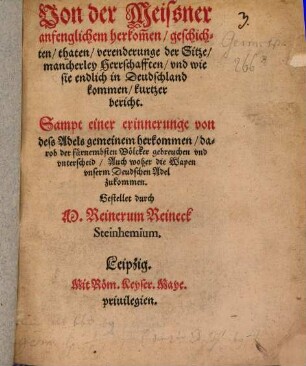 3.
Von der Meissner
anfenglichem herkom̃en/ geschich-
ten/ thaten/ verenderunge der Sitze/
mancherley Herrschafften/ vnd wie
sie endlich in Deudschland
kommen/ kurtzer
bericht.
Sampt einer erinnerunge von
dess Adels gemeinem herkommen/ da-
rob der fürnembsten Völcker gebreuchen vnd
vnterscheid/ Auch woher die Wapen
vnserm Deudschen Adel
zukommen.
Gestellet durch
M. Reinerum Reineck
Steinhemium.
Leipzig.
Mit Röm. Keyser. Maye.
priuilegien.